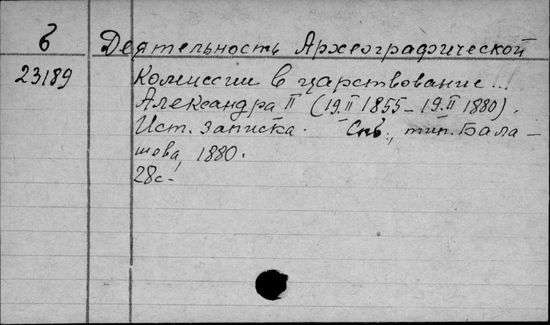 б Деятельность Археографической
23189 Комиссии в царствование...
Александра II (19.II 1855 - 19.II 1880).
Ист. записка. Спб., тип. Бала-
шева, 1880.
28с.